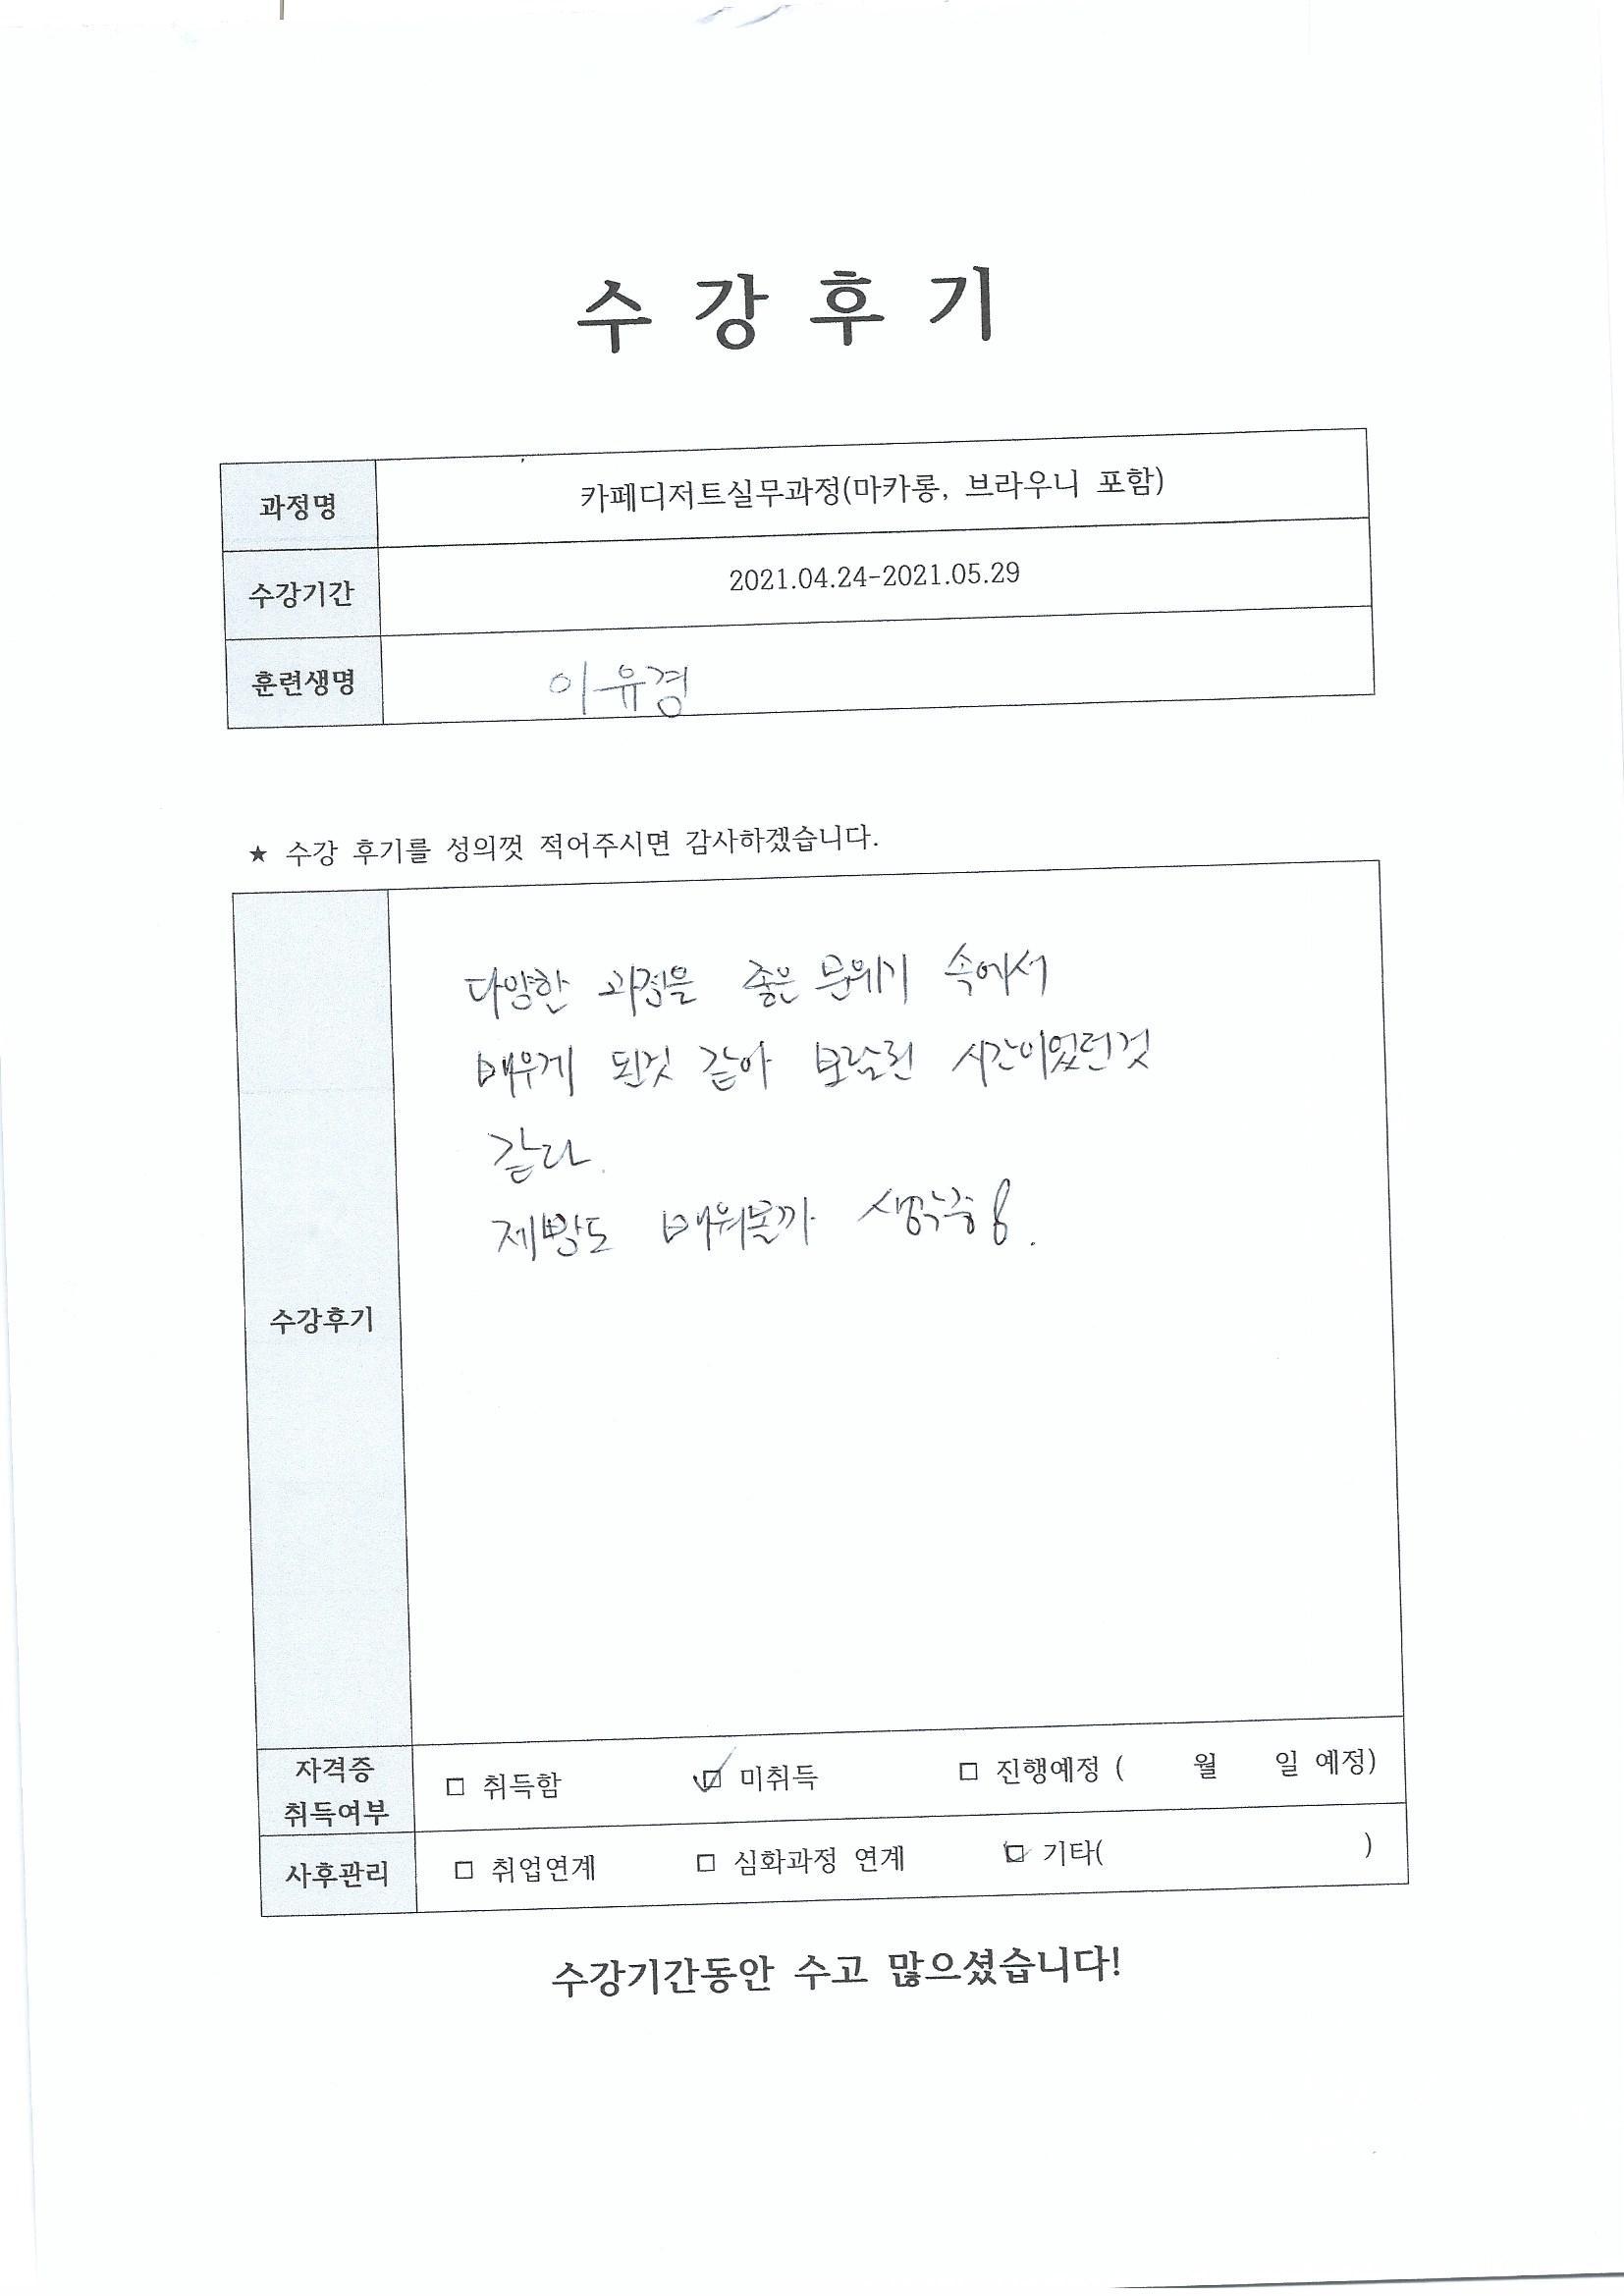 수 강 후 기
과정명 카페디저트실무과정(마카롱, 브라우니 포함)
수강기간 2021.04.24-2021.05.29
훈련생명 이유경
★ 수강 후기를 성의껏 적어주시면 감사하겠습니다.
수강후기
다양한 과정을 좋은 분위기 속에서
배우게 된것 같아 보람된 시간이었던것
같다.
제빵도 배워볼까 생각중
자격증
취득여부
□ 취득함 ☑ 미취득 □ 진행예정 ( 월 일 예정)
사후관리 □ 취업연계 □ 심화과정 연계 ☑ 기타( )
수강기간동안 수고 많으셨습니다!